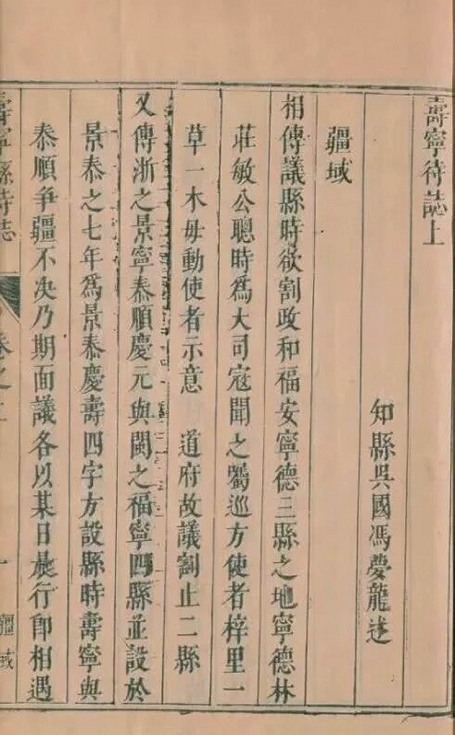 壽寧待誌上
知縣吳國馮夢龍述
疆域
相傳議縣時欲割政和福安寧德三縣之地寧德林
莊敏公聰時為大司寇聞之囑巡方使者梓里一
草一木毋動使者示意 道府故議割止二縣
又傳浙之景寧泰順慶元與閩之福寧四縣並設於
景泰之七年為景泰慶壽四字方設縣時壽寧與
泰順爭疆不決乃期面議各以某日晨行卽相遇
壽寧縣待誌 卷之上 一 疆域